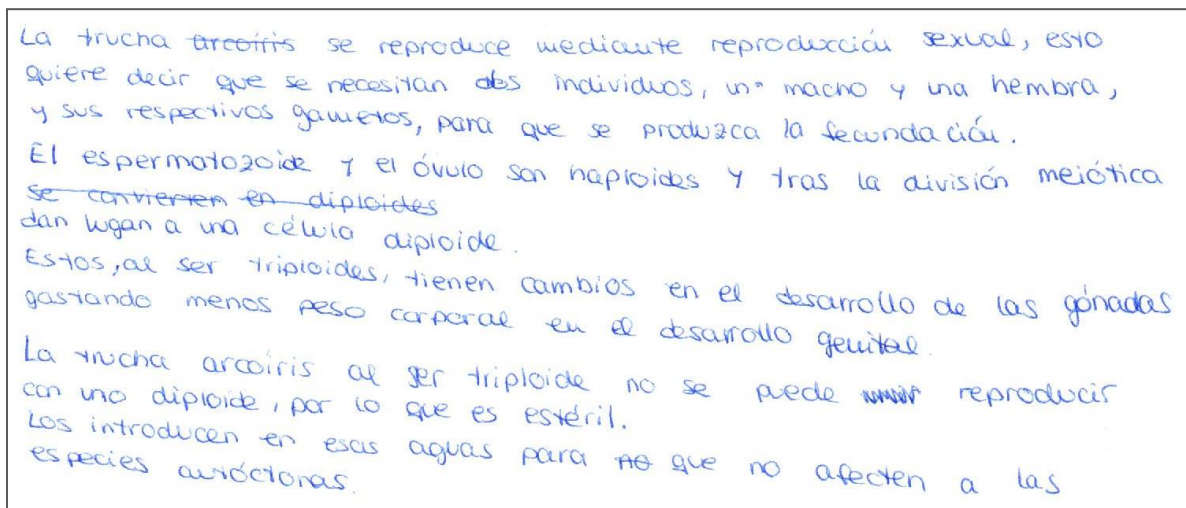 La trucha arcoíris se reproduce mediante reproducción sexual, esto
quiere decir que se necesitan dos individuos, un macho y una hembra,
y sus respectivos gametos, para que se produzca la fecundación.
El espermatozoide y el óvulo son haploides y tras la división meiótica
se convierten en diploides
dan lugan a una célula diploide.
Estos, al ser triploides, tienen cambios en el desarrollo de las gónadas
gastando menos peso corporal en el desarrollo genital.
La trucha arcoíris al ser triploide no se puede reproducir
con uno diploide, por lo que es estéril.
Los introducen en esas aguas para no que no afecten a las
especies autóctonas.